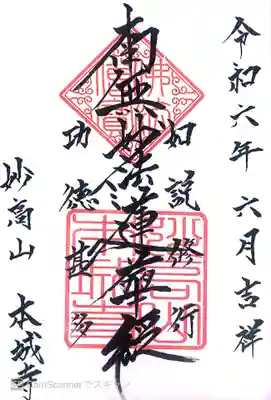 令和六年 六月吉祥
如説修行
南無妙法蓮華経
功徳甚多
妙高山 本城寺
CamScannerでスキャン